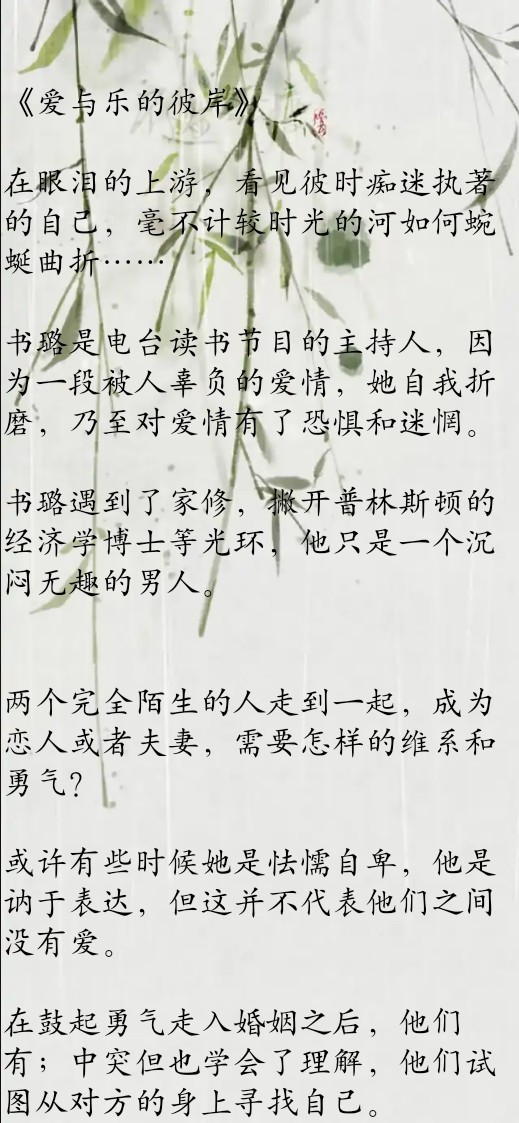 《爱与乐的彼岸》
在眼泪的上游，看见彼时痴迷执著
的自己，毫不计较时光的河如何蜿
蜒曲折……
书璐是电台读书节目的主持人，因
为一段被人辜负的爱情，她自我折
磨，乃至对爱情有了恐惧和迷惘。
书璐遇到了家修，撇开普林斯顿的
经济学博士等光环，他只是一个沉
闷无趣的男人。
两个完全陌生的人走到一起，成为
恋人或者夫妻，需要怎样的维系和
勇气？
或许有些时候她是怯懦自卑，他是
讷于表达，但这并不代表他们之间
没有爱。
在鼓起勇气走入婚姻之后，他们
有；中突但也学会了理解，他们试
图从对方的身上寻找自己。